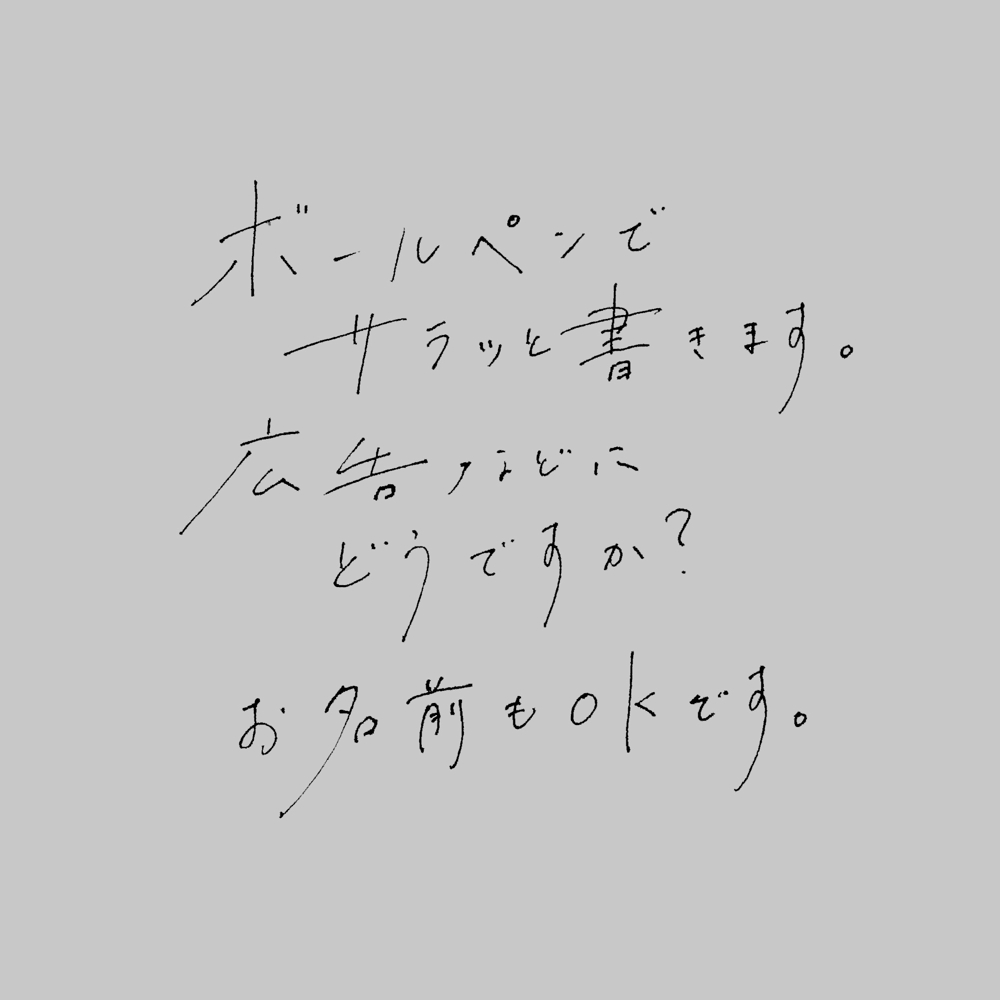 ボールペンで
サラッと書きます。
広告などに
どうですか?
お名前もOKです。